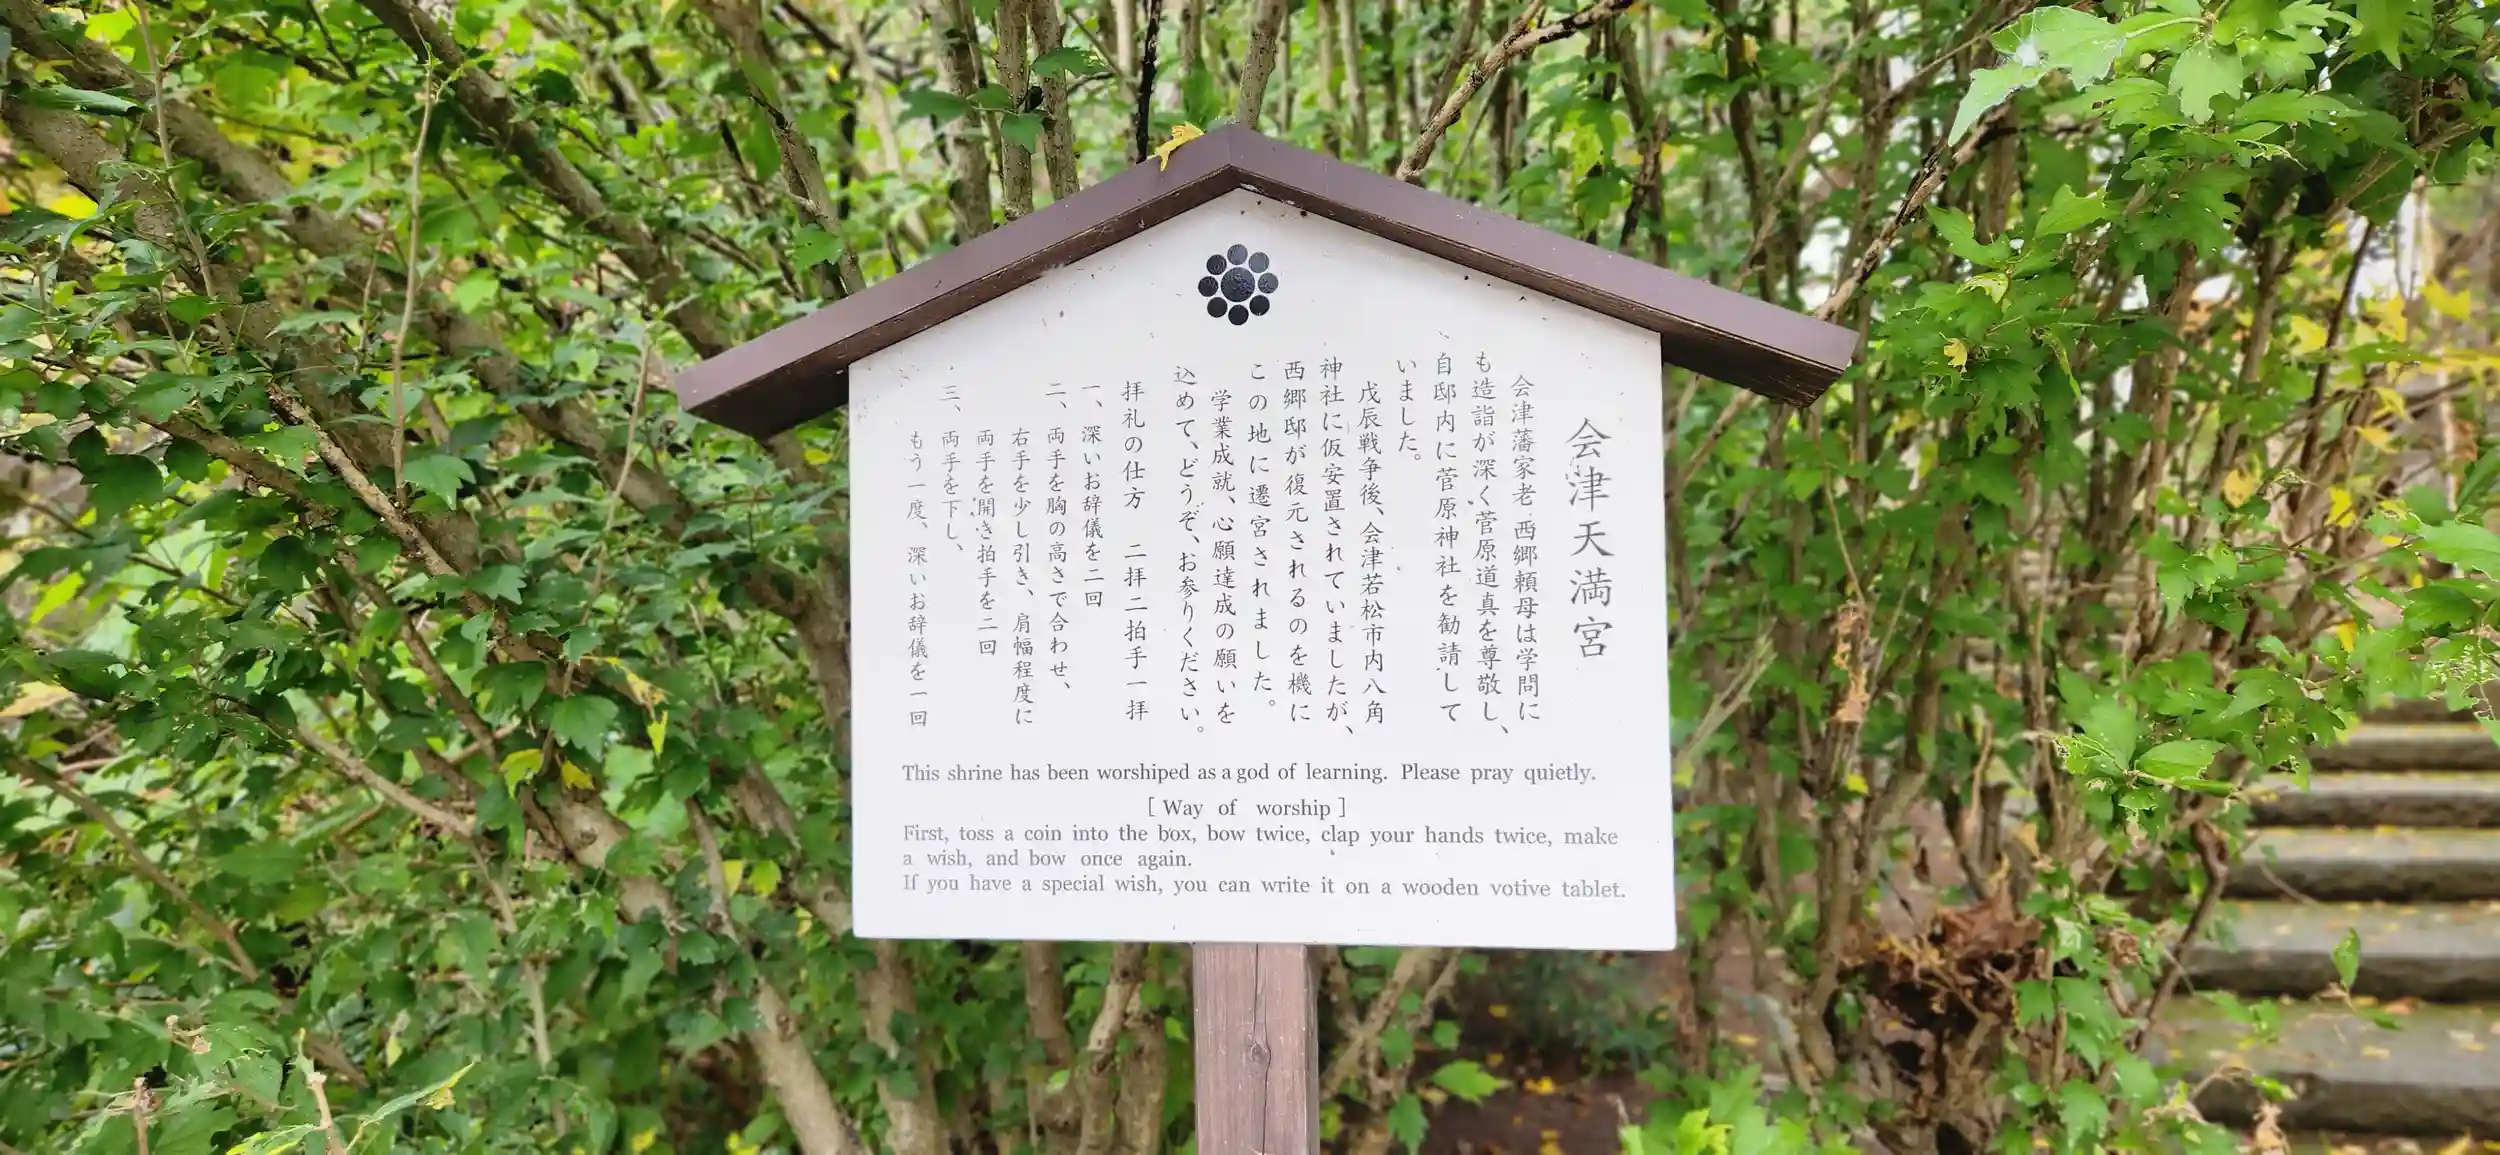 会津天満宮
会津藩家老 西郷頼母は学問に
も造詣が深く菅原道真を尊敬し、
自邸内に菅原神社を勧請して
いました。
戊辰戦争後、会津若松市内八角
神社に仮安置されていましたが、
西郷邸が復元されるのを機に
この地に遷宮されました。
学業成就、心願達成の願いを
込めて、どうぞ、お参りください。
拝礼の仕方　二拝二拍手一拝
一、深いお辞儀を二回
二、両手を胸の高さで合わせ、
右手を少し引き、肩幅程度に
両手を開き拍手を二回
三、両手を下し、
もう一度、深いお辞儀を一回
This shrine has been worshiped as a god of learning. Please pray quietly.
[ Way of worship ]
First, toss a coin into the box, bow twice, clap your hands twice, make
a wish, and bow once again.
If you have a special wish, you can write it on a wooden votive tablet.